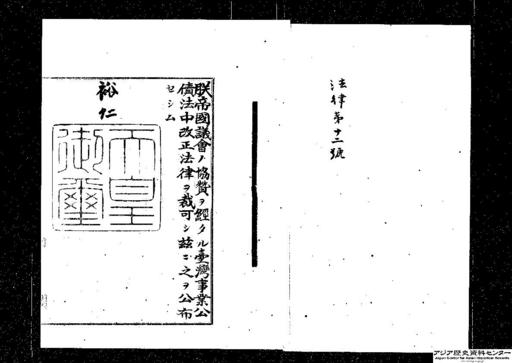 法律第十二號
朕帝國議會ノ協贊ヲ經タル臺灣事業公
債法中改正法律ヲ裁可シ茲ニ之ヲ公布
セシム
裕仁
天皇
御璽
アジア歴史資料センター
Japan Center for Asian Historical Records